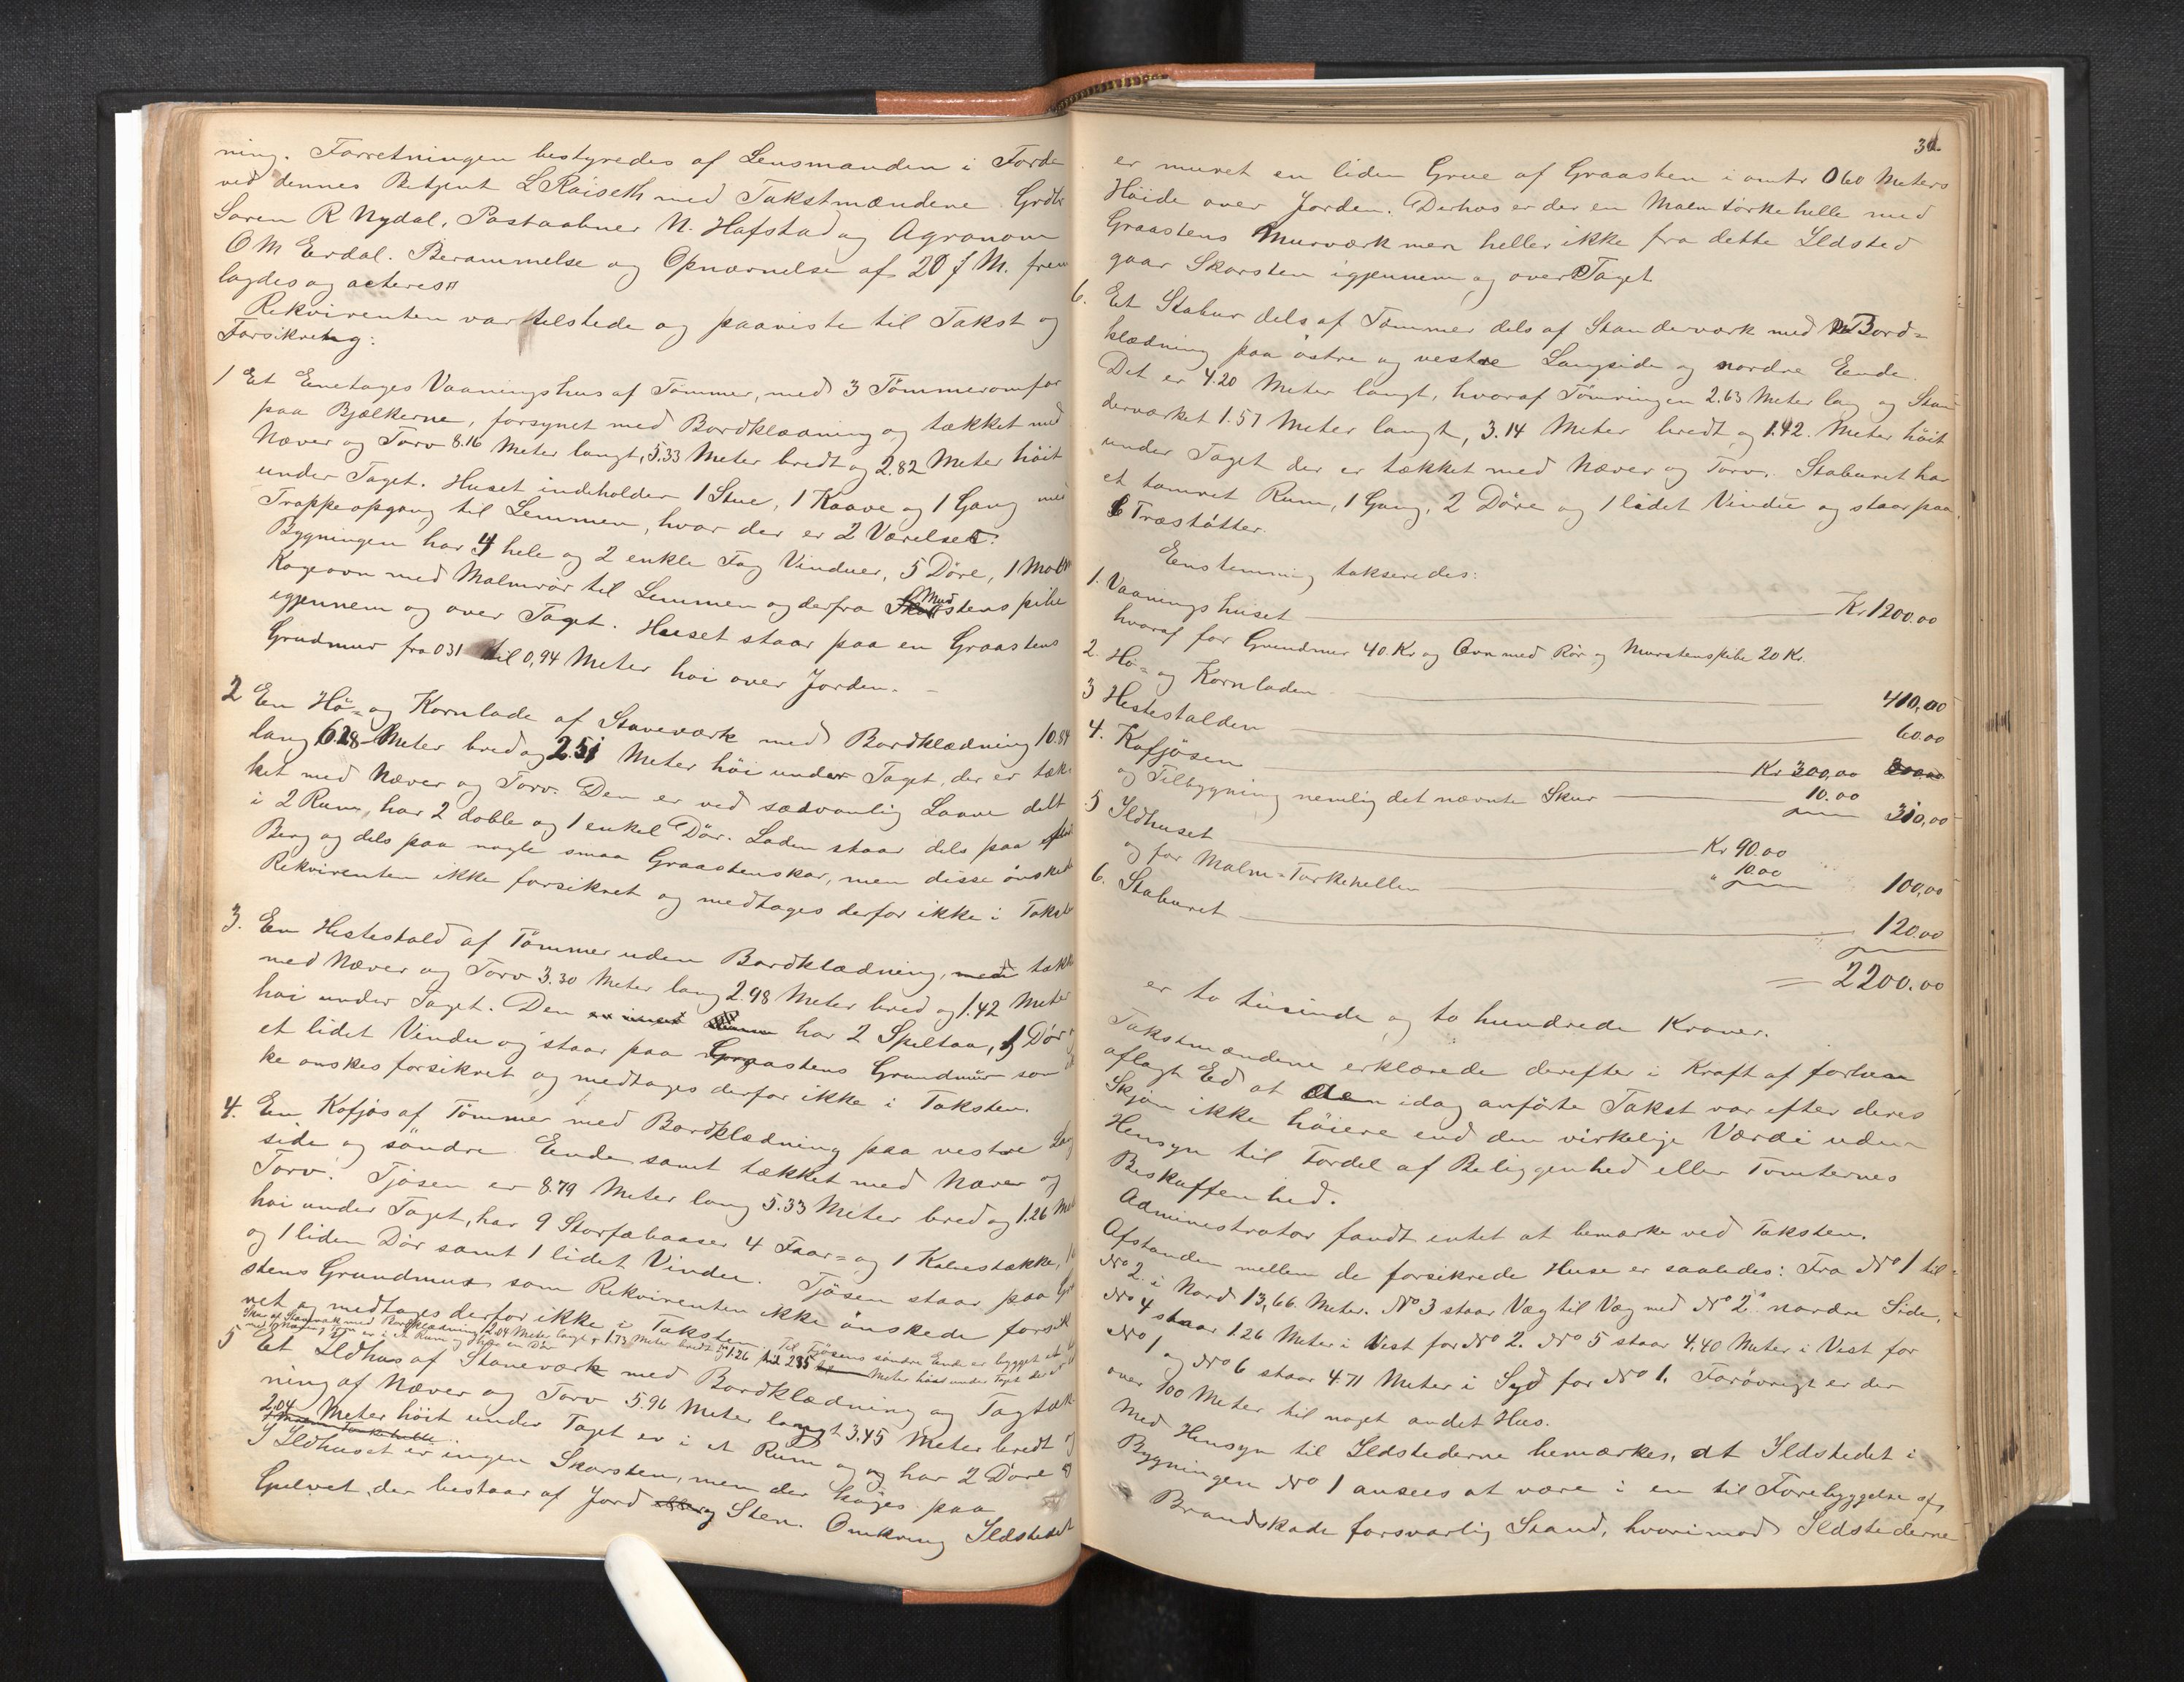 ning. Forretningen bestyredes af Lensmanden i Førde
ved dennes Betjent L Raiseth med Takstmændene Grdbr
Søren R Nydal, Postaabner N. Hafstad og Agronom
O M Erdal. Berammelse og Opnævnelse af 20 f M. frem
lagdes og acteres
Rekvirenten var tilstede og paaviste til Takst og
Forsikring:
1 Et Enetages Vaaningshus af Tømmer, med 3 Tømmeromfar
paa Bjælkerne, forsynet med Bordklædning og tækket med
Næver og Torv 8.16 Meter langt, 5.33 Meter bredt og 2.82 Meter höit
under Taget. Huset indeholder 1 Stue, 1 Kaave og 1 Gang med
Trappeopgang til Lemmen, hvor der er 2 Værelser.
Bygningen har 4 hele og 2 enkle Fag Vinduer, 5 Döre, 1 Malm
Kogeovn med Malmrör til Lemmen og derfra Murstenspibe
igjennem og over Taget. Huset staar paa en Graastens
Grudmur fra 0 31 til 0,94 Meter høi over Jorden. –
2 En Hö- og Kornlade af Stavværk med Bordklædning 10.84
lang 6.28 Meter bred og 2.51 Meter höi under Taget, der er tæk-
ket med Næver og Torv. Den er ved sædvanlig Laave delt
i 2 Rum, har 2 doble og 1 enkel Dör. Laden staar dels paa
Berg og dels paa nogle smaa Graastenskar, men disse önskes
Rekvirenten ikke forsikret og medtages derfor ikke i Takst
3. En Hestestald af Tömmer uden Bordklædning, med tækk
med Næver og Torv 3.30 Meter lang 2.98 Meter bred og 1.42 Meter
höi under Taget. Den har 2 Spiltau, 1 Dör
et lidet Vindu og staar paa Graastens Grundmür som
ke önskes forsikret og medtages derfor ikke i Taksten.
4. En Kofjös af Tömmer med Bordklædning paa vestre Lang
side og söndre Ende samt tækket med Næver og
Torv. Fjösen er 8.79 Meter lang 5.33 Meter bred og 1.26 Met
höi under Taget, har 9 Storfæbaaser 4 Faar- og 1 Kalvestække,
og 1 liden Dör samt 1 lidet Vindu. Fjösen staar paa Gr
stens Grundmur som Rekvirenten ikke önskede forsik
ret og medtages derfor ikke i Taksten. Til Fjösens söndre Ende er bygget et
Skur af Stavværk med Bordklædning 2.04 Meter langt, 1.73 Meter bredt og 1.26 til 2.35 Meter höit under Taget der er
med Næver og Torv er i et Rum og har en Dör
5 Et Ildhus af Stavværk med Bordklædning og Tagtæk
ning af Næver og Torv 5.96 Meter langt 3.45 Meter bredt og
2,04 Meter höit under Taget er i et Rum og har 2 Döre
I Ildhuset er ingen Skorsten, men der koges paa
Gulvet, der bestaar af Jord og Sten. Omkring Ildstedet
31.
er muret en liden Grue af Graasten i omtr 0 60 Meters
Höide over Jorden. Derhos er der en Malmtörkehelle med
Graastens Murværk men heller ikke fra dette Ildsted
gaar Skorsten igjennem og over Taget
6. Et Stabur dels af Tømmer dels af Standerværk med Bord-
klædning paa östre og vestre Langside og nordre Ende.
Det er 4.20 Meter langt, hvoraf Tömringen 2.63 Meter lang og Stan
derværket 1.57 Meter langt, 3.14 Meter bredt og 1.42 Meter höit
under Taget der er tækket med Næver og Torv. Staburet har
et tømret Rum, 1 Gang, 2 Döre og 1 lidet Vindu og staar paa
6 Træstötter.
Enstemmig takseredes:
1. Vaaningshuset Kr 1200.00
hvoraf for Grundmur 40. Kr og Ovn med Rör og Murstenspibe 20 Kr.
2. Hö- og Kornladen 410,00
3 Hestestalden 60.00
4. Kofjösen Kr 300,00 300.00
og Tilbygning nemlig det nævnte Skur 10.00 310,00
5 Ildhuset Kr 90.00
og for Malm-Tørkehellen " 10.00 100,00
6. Staburet 120.00
= 2200.00
er to tusinde og to hundrede Kroner.
Takstmændene erklærede derefter i Kraft af forhen
aflagt Ed at den idag anförte Takst var efter deres
Skjön ikke höiere end den virkelige Værdi uden
Hensyn til Fordel af Beliggenhed eller Tomternes
Beskaffenhed.
Administrator fandt intet at bemærke ved Taksten.
Afstanden mellem de forsikrede Huse er saaledes: Fra No 1 til
No 2. i Nord 13,66. Meter. No 3 staar Væg til Væg med No 2's nordre Side,
No 4 staar 1.26 Meter i Vest for No 2. No 5 staar 4,40 Meter i Vest for
No 1 og No 6 staar 4.71 Meter i Syd for No 1. Forøvrigt er der
over 100 Meter til noget andet Hus.
Med Hensyn til Ildstederne bemærkes, at Ildstedet i
Bygningen No 1 ansees at være i en til Forebyggelse af
Brandskade forsvarlig Stand, hvorimod Ildstederne